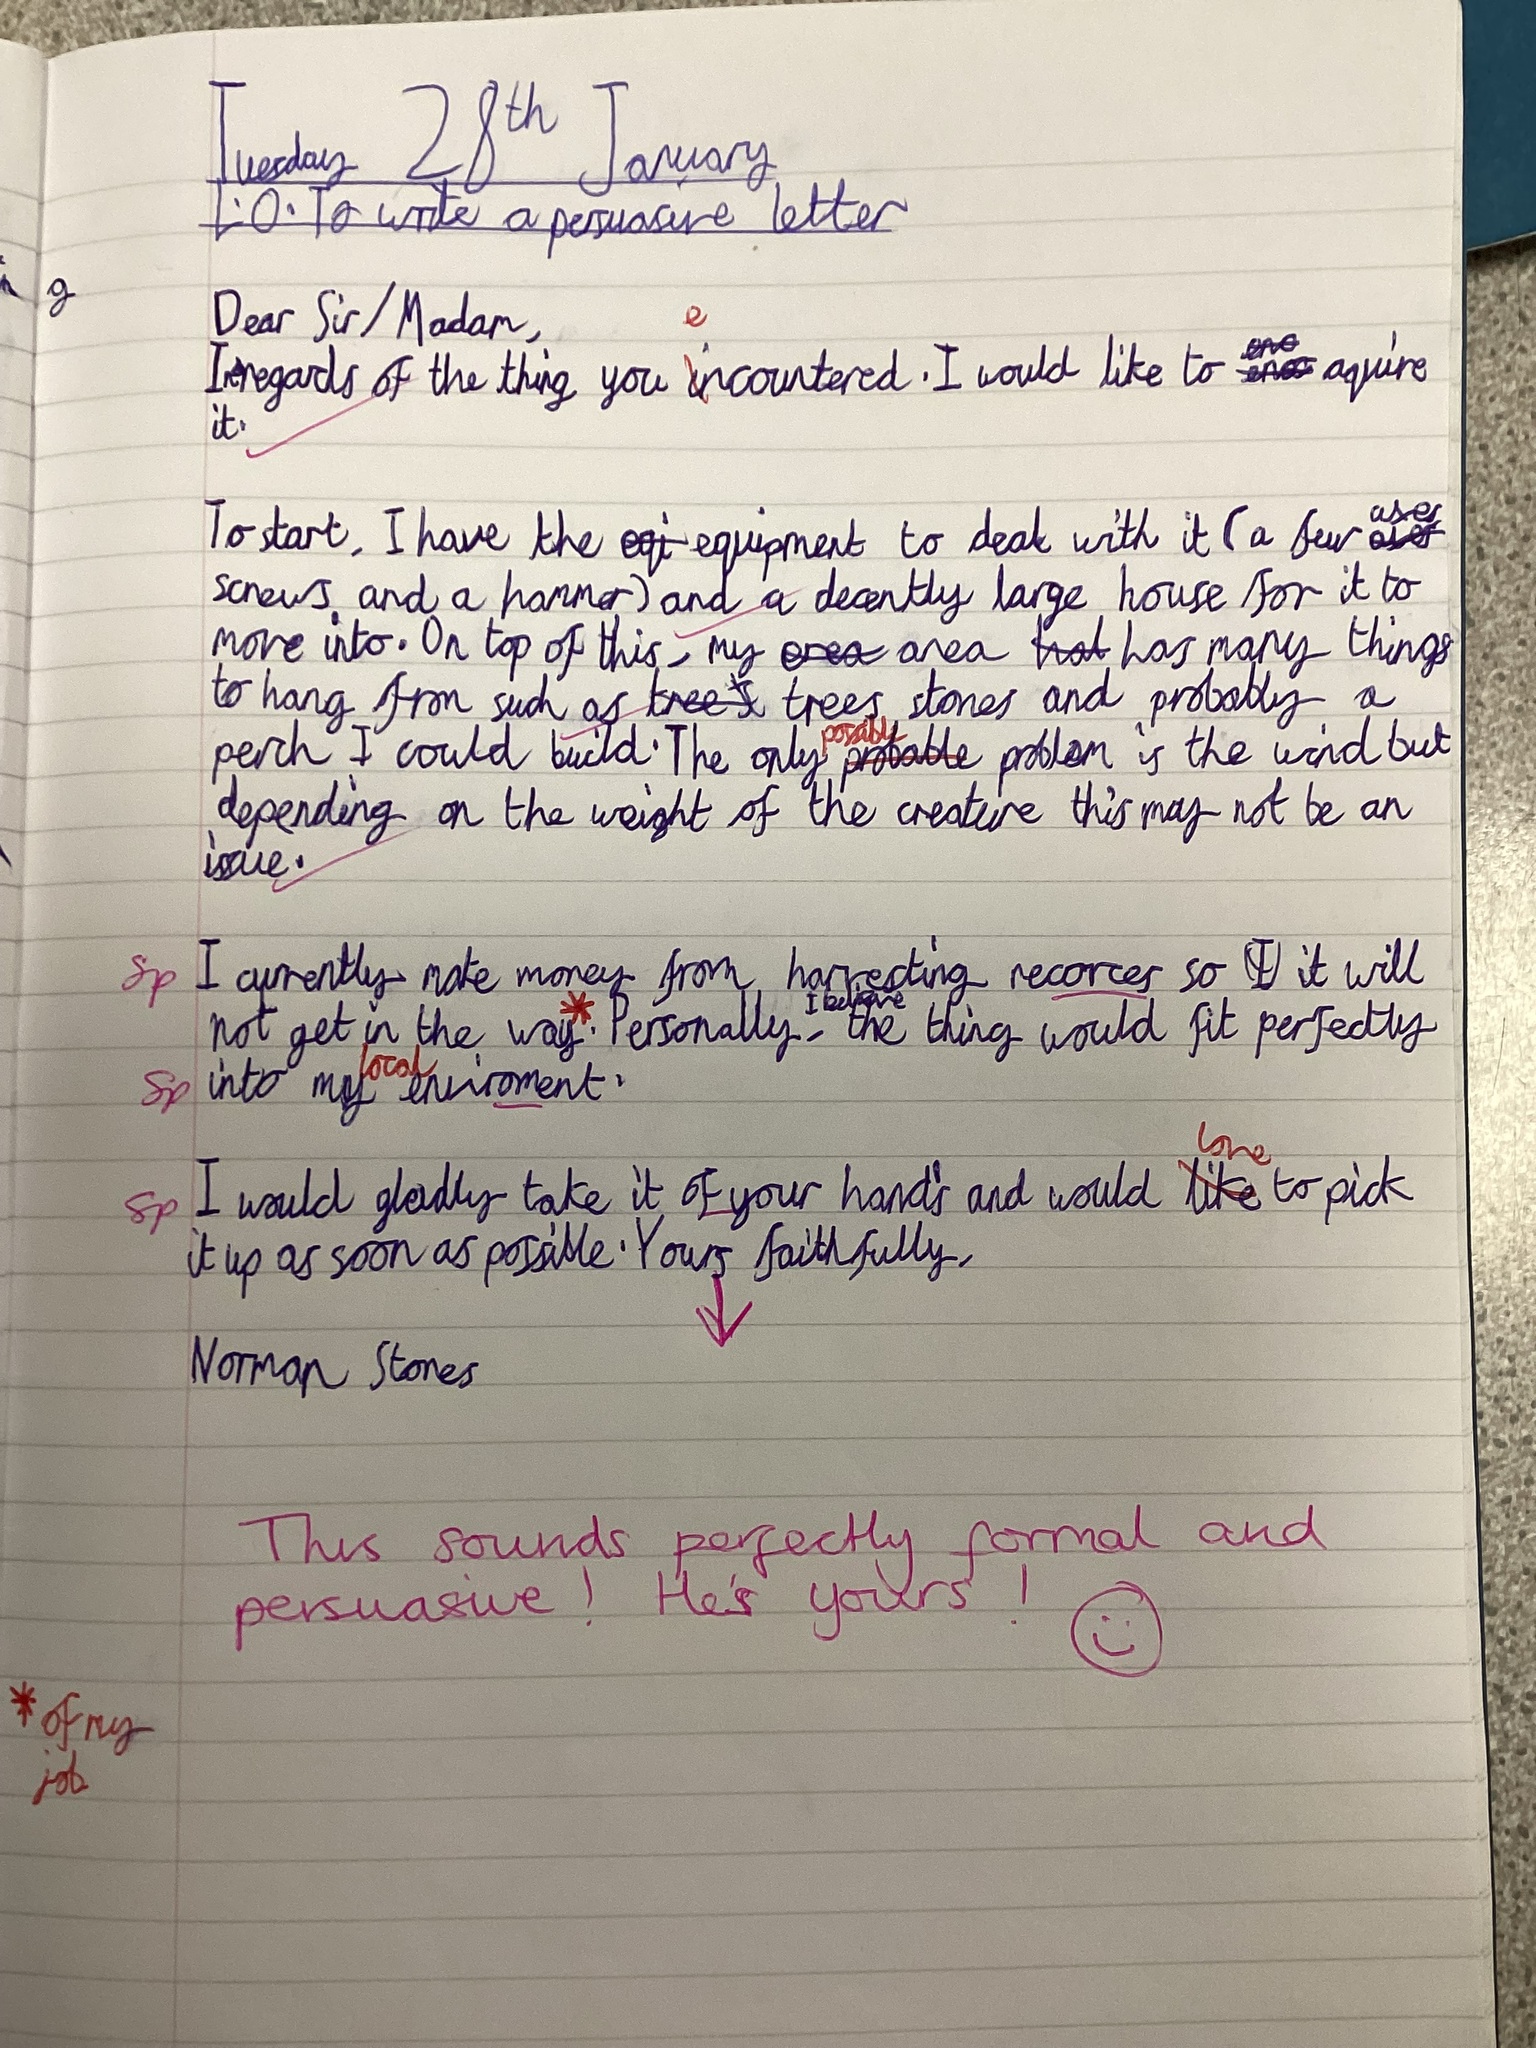 Tuesday 28th January
L.O. To write a persuasive letter
g
Dear Sir/Madam,
e
In regards of the thing you incountered. I would like to aquire
it.
To start, I have the eqi equipment to deal with it (a few
screws and a hammer) and a decently large house for it to
move into. On top of this, my area area hat has many things
to hang from such as tree's trees stones and probably a
perch I could build. The only probable possibly problem is the wind but
depending on the weight of the creature this may not be an
issue.
Sp I currently make money from harvesting recorces so (I) it will
not get in the way*. Personally, I believe the thing would fit perfectly
Sp into my local enviroment.
Sp I would gladly take it of your hands and would like love to pick
it up as soon as possible. Yours faithfully,
Norman Stones
This sounds perfectly formal and
persuasive! He's yours!
*of my
job